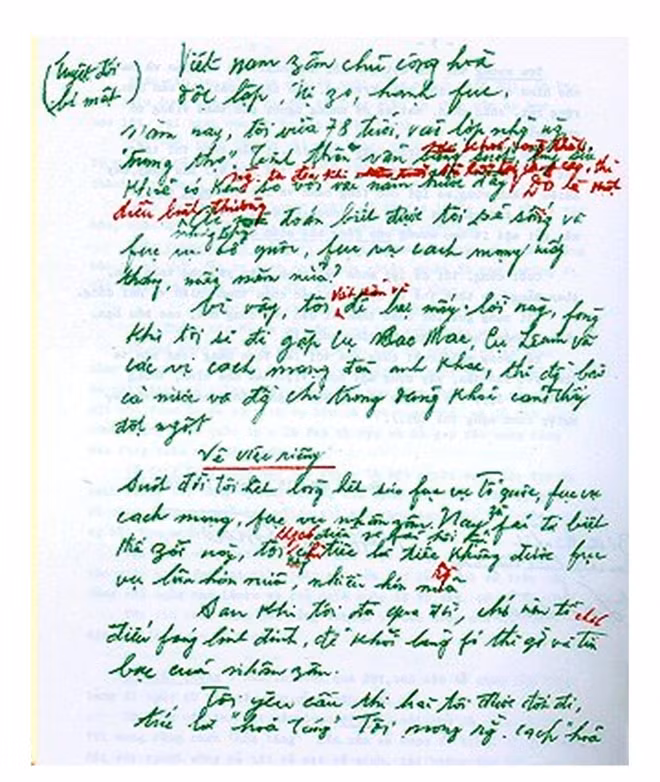 (Tuyệt đối
bí mật)
Việt nam zân chủ cộng hoà
Độc lập, tự zo, hạnh fúc
Năm nay, tôi vừa 78 tuổi, vào lớp những ng
"trung thọ". Tinh thần vẫn
khoẻ có kém so với vài năm trước đây. Đó là một
điều bình thường
đoán biết được tôi sẽ sống và
fục vụ Tổ quốc, fục vụ cách mạng mấy
tháng, mấy năm nữa?
Vì vậy, tôi để lại mấy lời này, fòng
khi tôi sẽ đi gặp cụ Các Mác, Cụ Lênin và
các vị cách mạng đàn anh khác, thì đồng bào
cả nước và đồng chí trong đảng khỏi cảm thấy
đột ngột
Về việc riêng
Suốt đời tôi hết lòng hết sức fục vụ Tổ quốc, fục vụ
cách mạng, fục vụ nhân zân. Nay zù fải từ biệt
thế zới này, tôi tiếc là tiếc không được fục
vụ lâu hơn nữa, nhiều hơn nữa
Sau khi tôi đã qua đời, chớ nên tổ chức
điếu fúng linh đình, để khỏi lãng fí thì giờ và tiền
bạc của nhân zân.
Tôi yêu cầu thi hài tôi được đốt đi,
tức là "hoả táng". Tôi mong rằng cách "hoả